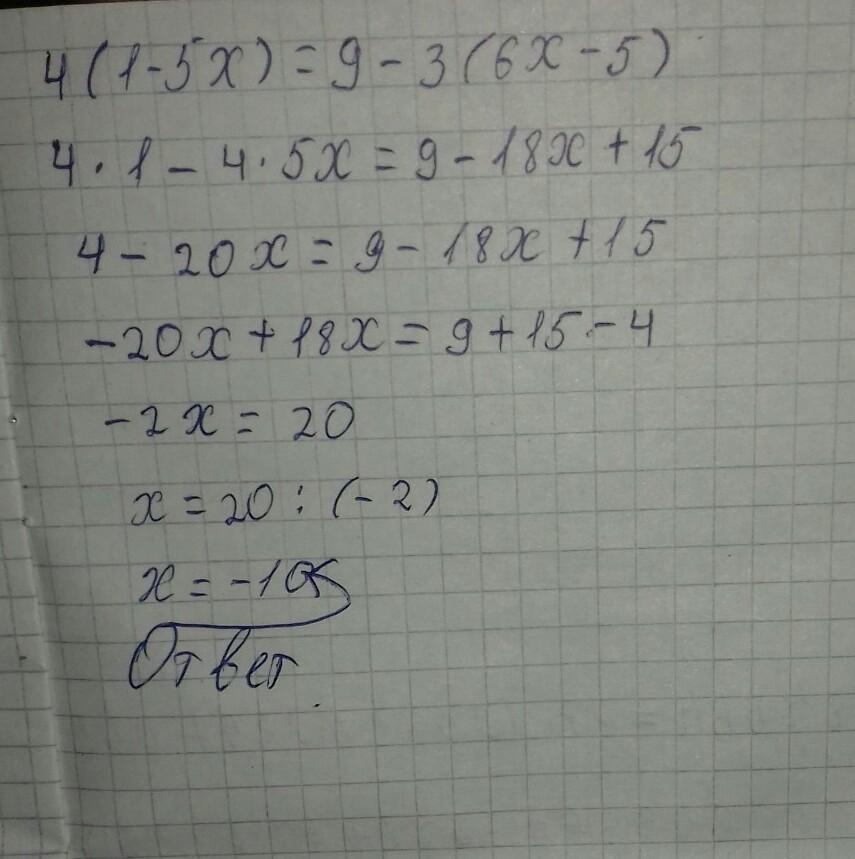 4(1-5x)=9-3(6x-5)
4·1-4·5x=9-18x+15
4-20x=9-18x+15
-20x+18x=9+15-4
-2x=20
x=20:(-2)
x=-10
Ответ